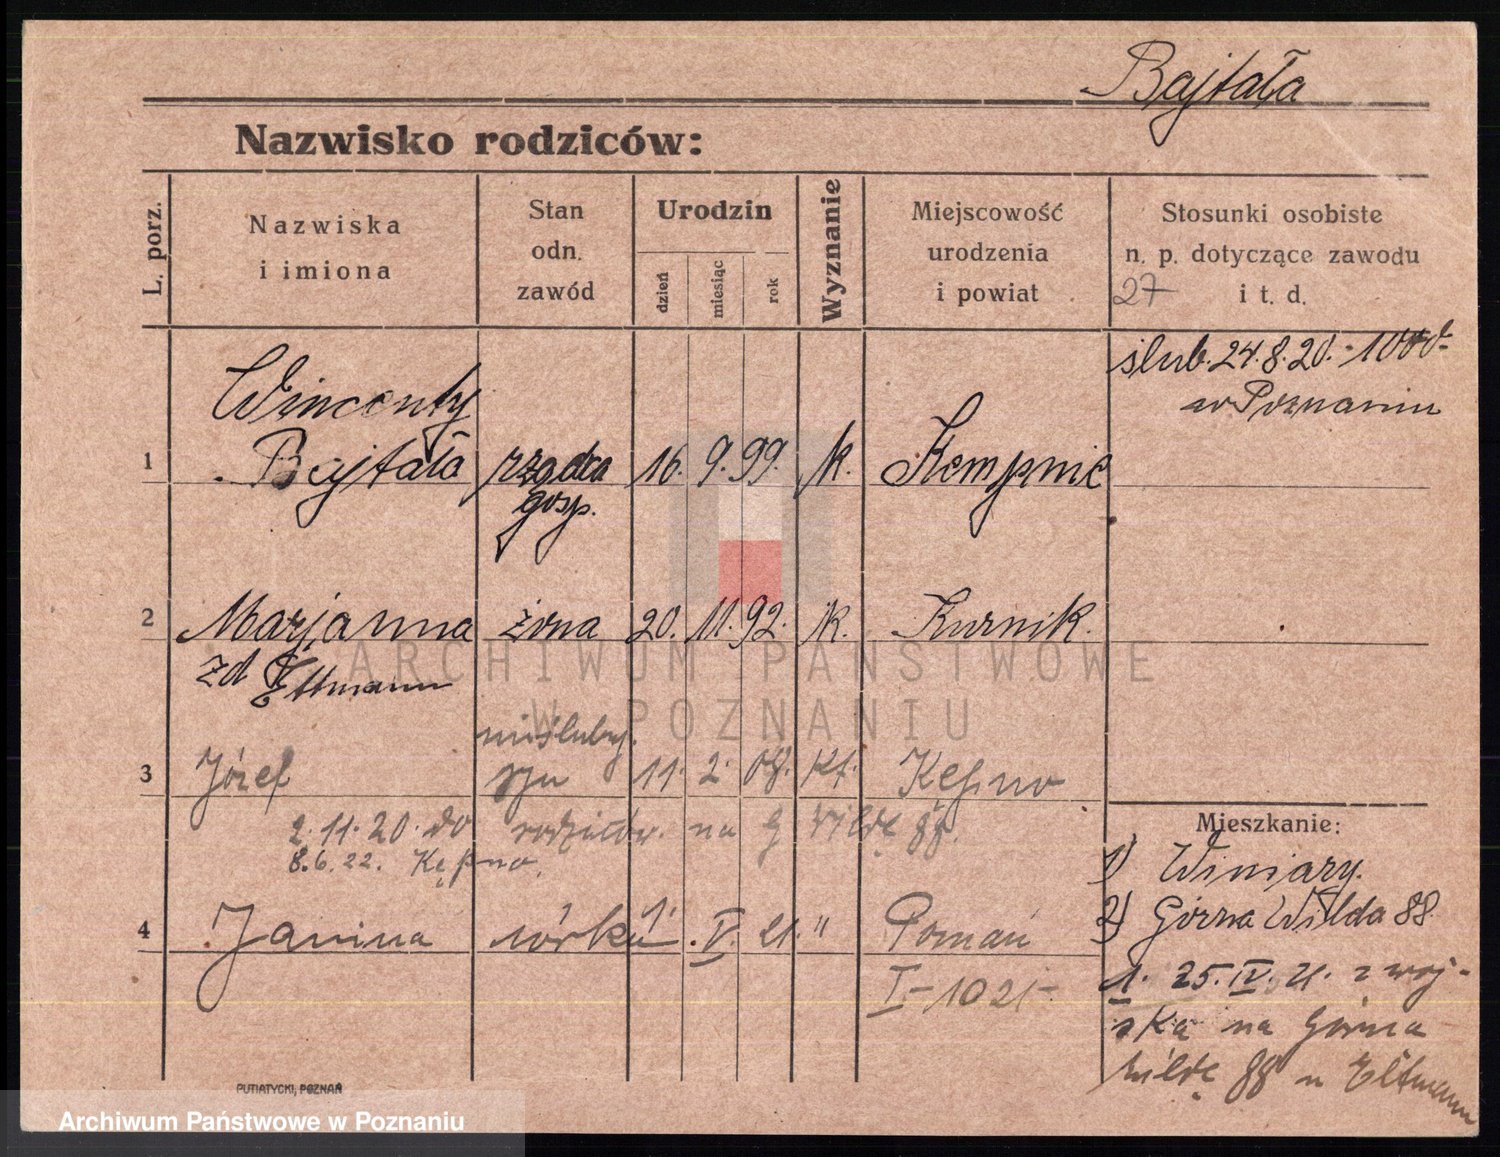 Bajtała
Nazwisko rodziców:
L. porz.
Nazwiska
i imiona
Stan
odn.
zawód
Urodzin
dzień
miesiąc
rok
Wyznanie
Miejscowość
urodzenia
i powiat
Stosunki osobiste
n. p. dotyczące zawodu
27 i t. d.
ślub. 24.8.20.
w Poznaniu
Wincenty
1 Bajtała rządca 16. 9. 99. k. Kempnie
gosp.
2 Marjanna żona 20. 11. 92. k. Kurnik.
zd Eltmann
nieślubny
3 Józef syn 11. 2. kt. Kępno
2.11.20. do rodziców. na G Wildę 88.
8.6.22. Kępno.
4 Janina córka 1. V. 21. " Poznań
I-1021-
Mieszkanie:
1) Winiary.
2) Górna Wilda 88
1. 25. IV. 21. z woj-
ska na Górna
Wildę 88 u Eltmann
PUTIATYCKI, POZNAŃ
ARCHIWUM PAŃSTWOWE
W POZNANIU
Archiwum Państwowe w Poznaniu